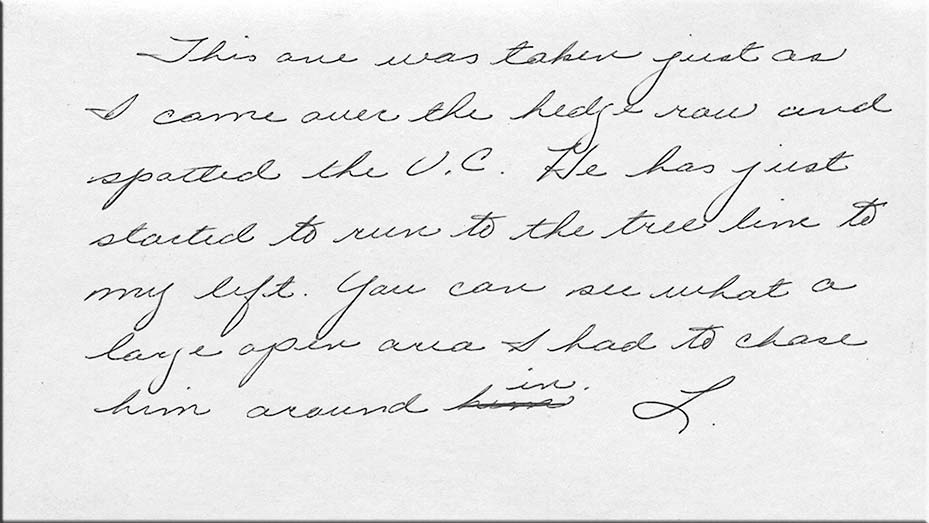 This one was taken just as
I came over the hedge row and
spotted the V.C. He has just
started to run to the tree line to
my left. You can see what a
large open area I had to chase
him around him in. L.